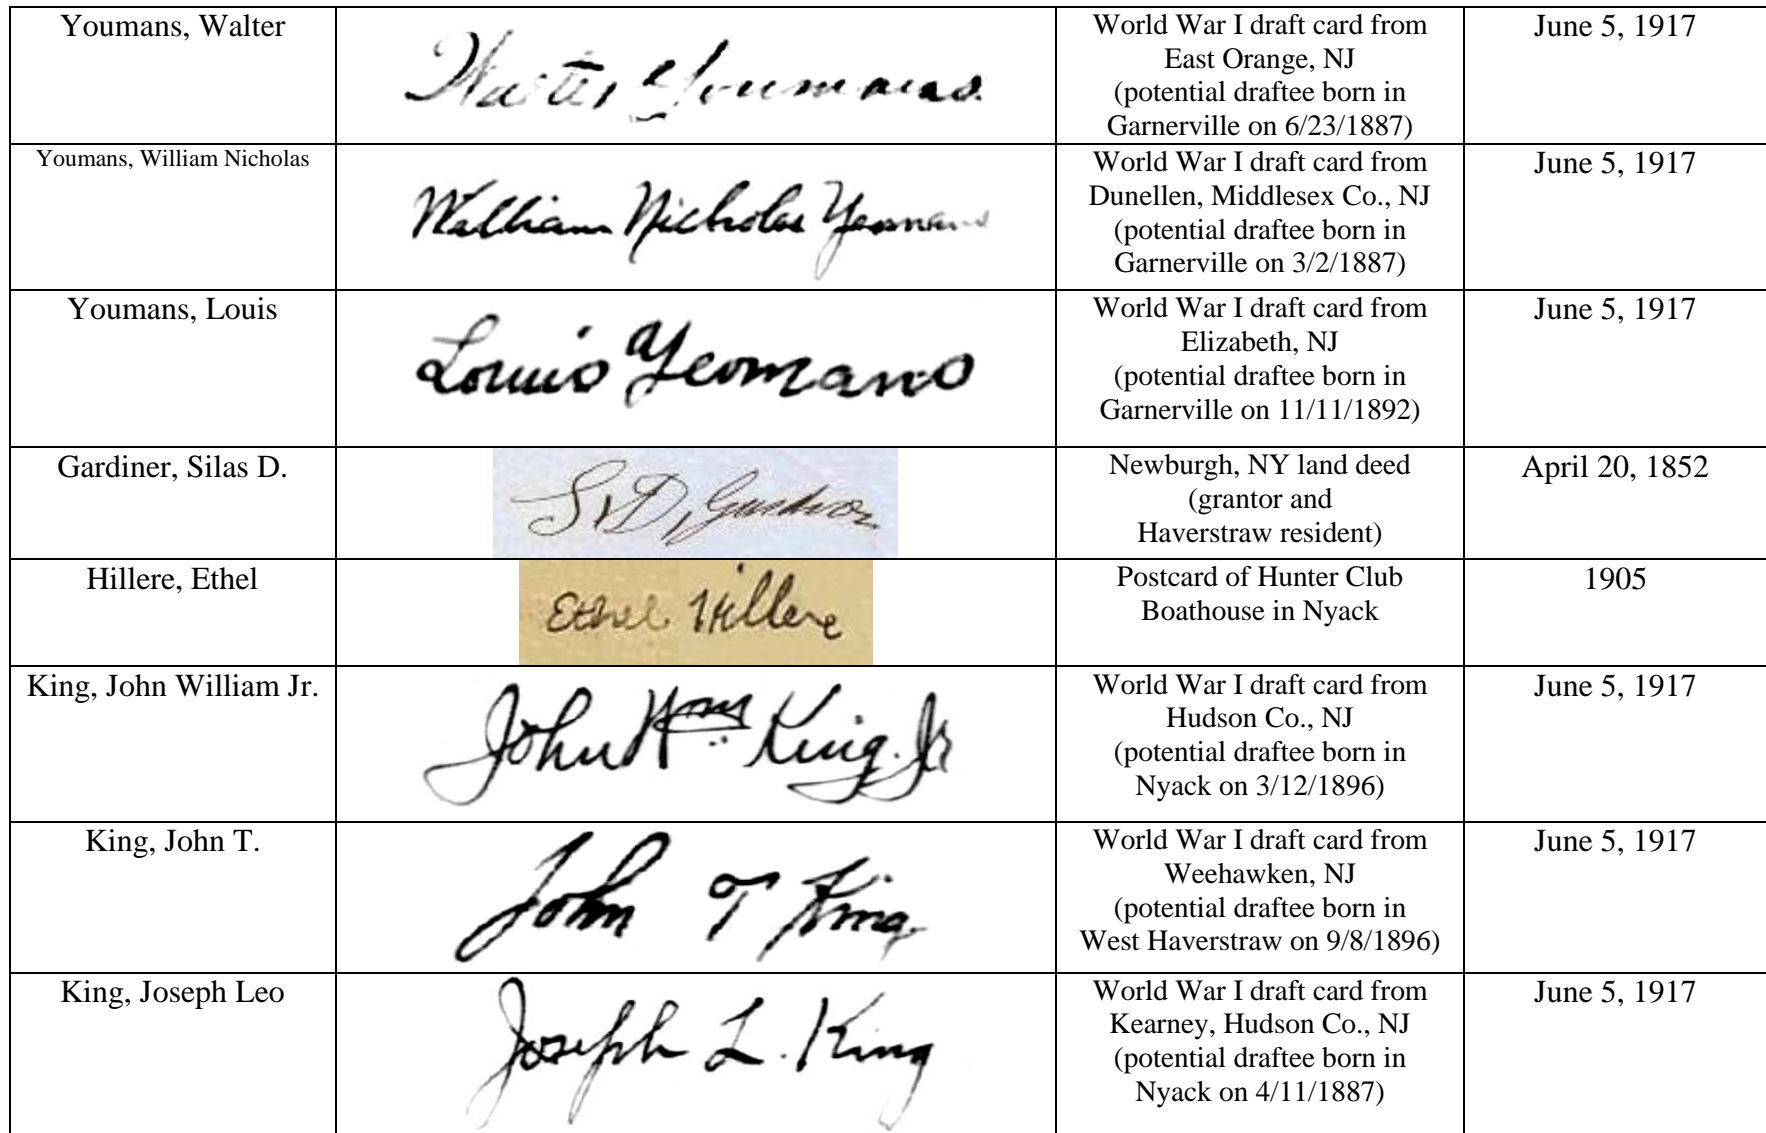 Youmans, Walter
Walter Youmans.
World War I draft card from
East Orange, NJ
(potential draftee born in
Garnerville on 6/23/1887)
June 5, 1917
Youmans, William Nicholas
William Nicholas Yeomans
World War I draft card from
Dunellen, Middlesex Co., NJ
(potential draftee born in
Garnerville on 3/2/1887)
June 5, 1917
Youmans, Louis
Louis Yeomans
World War I draft card from
Elizabeth, NJ
(potential draftee born in
Garnerville on 11/11/1892)
June 5, 1917
Gardiner, Silas D.
S. D. Gardiner
Newburgh, NY land deed
(grantor and
Haverstraw resident)
April 20, 1852
Hillere, Ethel
Ethel Hillere
Postcard of Hunter Club
Boathouse in Nyack
1905
King, John William Jr.
John Wm King. Jr
World War I draft card from
Hudson Co., NJ
(potential draftee born in
Nyack on 3/12/1896)
June 5, 1917
King, John T.
John T King
World War I draft card from
Weehawken, NJ
(potential draftee born in
West Haverstraw on 9/8/1896)
June 5, 1917
King, Joseph Leo
Joseph L. King
World War I draft card from
Kearney, Hudson Co., NJ
(potential draftee born in
Nyack on 4/11/1887)
June 5, 1917